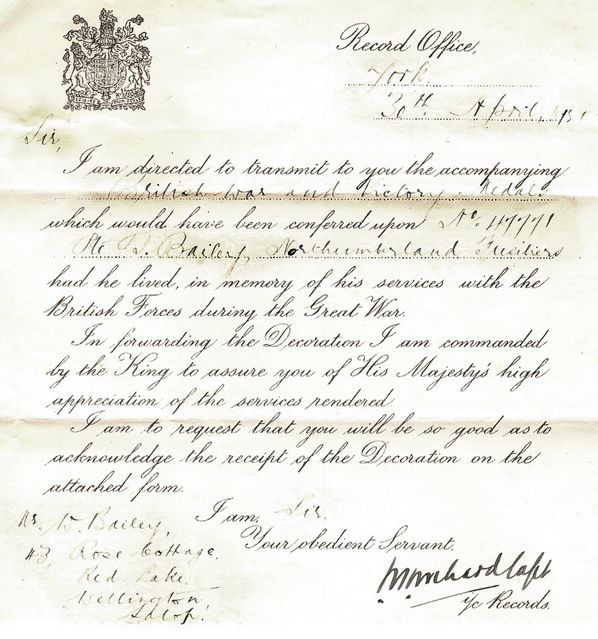 Record Office,
York
30th April, 
Sir,
I am directed to transmit to you the accompanying
British War and Victory Medals
which would have been conferred upon No. 47771
Pte Bailey, Northumberland Fusiliers
had he lived, in memory of his services with the
British Forces during the Great War.
In forwarding the Decoration I am commanded
by the King to assure you of His Majesty's high
appreciation of the services rendered
I am to request that you will be so good as to
acknowledge the receipt of the Decoration on the
attached form.
I am, Sir,
Your obedient Servant.
Capt
i/c Records.
Mr. W. Bailey,
Rose Cottage,
Red Lake,
Wellington,
Salop.